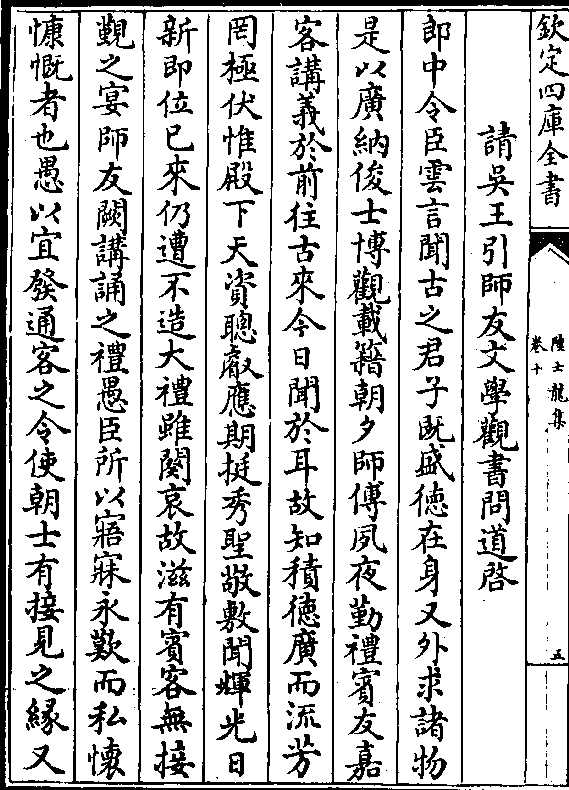 欽定四庫全書
陸士龍集
卷十
五
請吳王引師友文學觀書問道啓
郎中令臣雲言聞古之君子既盛徳在身又外求諸物
是以廣納俊士博觀載籍朝夕師傅夙夜勤禮賓友嘉
客講義於前往古來今日聞於耳故知積徳廣而流芳
罔極伏惟殿下天資聰叡應期挺秀聖敬敷聞輝光日
新即位已來仍遭不造大禮雖闋哀故滋有賓客無接
覲之宴師友闕講誦之禮愚臣所以寤寐永歎而私懐
慷慨者也愚以宜發通客之令使朝士有接見之縁又